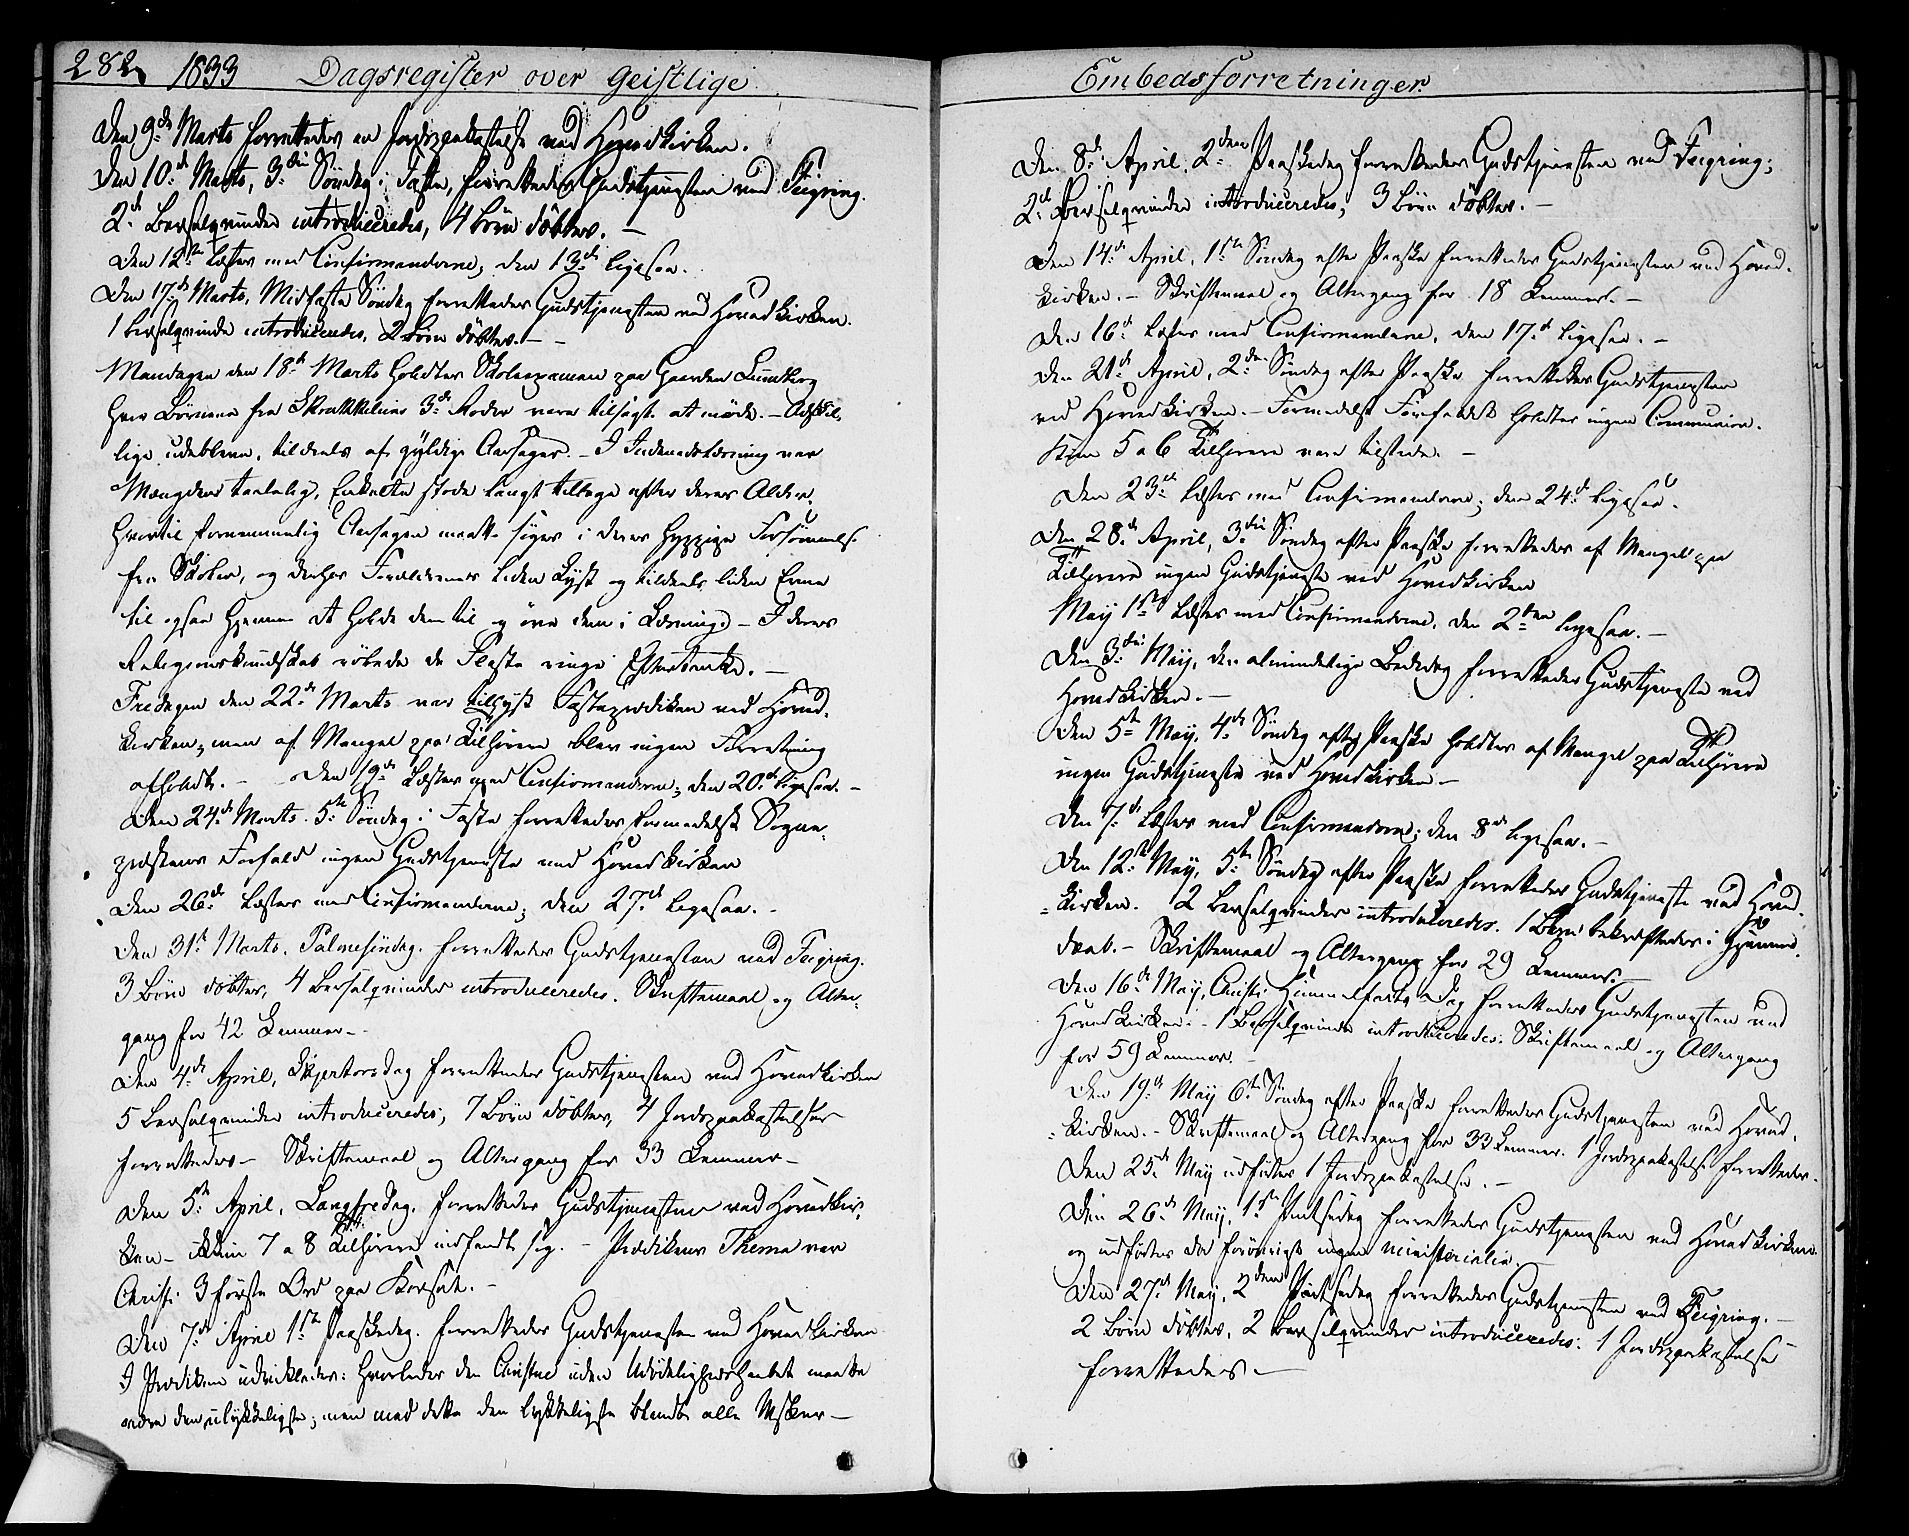 282. 1833 Dagsregister over Geistlige
Den 9de Marts forrettedes en Jordpaakastelse ved Hovedkirken.
Den 10de Marts, 3die Søndag i Faste, forrettedes Gudstjenesten ved Feigring.
2de Barselqvinder introduceredes, 4 Børn døbtes. —
Den 12te læstes med Confirmanderne, den 13de ligesaa.
Den 17de Marts, Midfaste Søndag forrettedes Gudstjenesten ved Hovedkirken.
1 Barselqvinde introduceredes, 2 Børn døbtes. — —
Mandagen den 18de Marts holdtes Skoleexamen paa Gaarden Lundberg
hvor Børnene fra 3de Roder vare tilsagte at møde. — Adskil-
lige udebleve, tildeels af gyldige Aarsager. — I Indenadslæsning var
Mængden taalelig, Enkelte stode langt tilbage efter deres Alder,
hvortil fornemmelig Aarsagen maatte søges i deres hyppige Forsømmelse
fra Skolen, og derhos Forældrenes liden Lyst og tildeels liden Evne
til ogsaa hjemme at holde dem til og øve dem i Læsning. — I deres
Religionskundskab røbede de Fleste ringe Eftertanke. —
Fredagen den 22de Marts var tillyst Fasteprædiken ved Hoved-
kirken, men af Mangel paa Tilhørere blev ingen Forretning
afholdt. — Den 19de læstes med Confirmanderne; den 20de ligesaa. —
Den 24de Marts. 5te Søndag i Faste forrettedes formedelst Sogne-
præstens Forfald ingen Gudstjeneste ved Hovedkirken
Den 26de læstes med Confirmanderne; den 27de ligesaa. —
Den 31te Marts. Palmesøndag. forrettedes Gudstjenesten ved Feigring.
3 Børn døbtes, 4 Barselqvinder introduceredes. Skriftemaal og Alter-
gang for 42 Lemmer —
Den 4de April, Skjertorsdag forrettedes Gudstjenesten ved Hovedkirken
5 Barselqvinder introduceredes, 7 Børn døbtes, 4 Jordpaakastelser
forrettedes — Skriftemaal og Altergang for 33 Lemmer —
Den 5te April, Langfredag. forrettedes Gudstjenesten ved Hovedkir-
ken — Kun 7 a 8 Tilhørere indfandt sig. — Prædikens Thema var
Christi 3 første Ord paa Korset. —
Den 7de April 1ste Paaskedag. forrettedes Gudstjenesten ved Hovedkirken
I Prædiken udvikledes: hvorledes den Christne uden Udødelighedshaabet maatte
være den ulykkeligste; men med dette den lykkeligste blandt alle Msker —
Embedsforretninger
Den 8de April, 2den Paaskedag forrettedes Gudstjenesten ved Feigring;
2de Barselqvinder introduceredes, 3 Børn døbtes. —
Den 14de April, 1ste Søndag efter Paaske forrettedes Gudstjenesten ved Hoved-
kirken. — Skriftemaal og Altergang for 18 Lemmer. —
Den 16de læstes med Confirmanderne, den 17de ligesaa. —
Den 21de April, 2den Søndag efter Paaske forrettedes Gudstjenesten
ved Hovedkirken. — Formedelst holdtes ingen Communion.
Kun 5 a 6 Tilhørere vare tilstede. —
Den 23de læstes med Confirmanderne; den 24de ligesaa.
Den 28de April, 3die Søndag efter Paaske forrettedes af Mangel paa
Tilhørere ingen Gudstjeneste ved Hovedkirken
May 1ste læstes med Confirmanderne, den 2den ligesaa. —
Den 3die May, den almindelige Bededag forrettedes Gudstjeneste ved
Hovedkirken. —
Den 5te May, 4de Søndag efter Paaske holdtes af Mangel paa Tilhørere
ingen Gudstjeneste ved Hovedkirken —
Den 7de læstes med Confirmanderne; den 8de ligesaa. —
Den 12te May, 5te Søndag efter Paaske forrettedes Gudstjeneste ved Hoved-
kirken. 2 Barselqvinder introduceredes. 1 Barn bekræftedes i Hjemme-
daab. — Skriftemaal og Altergang for 29 Lemmer. —
Den 16de May, Christi Himmelfarts Dag forrettedes Gudstjenesten ved
Hovedkirken. — 1 Barselqvinde introduceredes. Skriftemaal og Altergang
for 59 Lemmer. —
Den 19de May 6te Søndag efter Paaske forrettedes Gudstjenesten ved Hoved-
kirken. — Skriftemaal og Altergang for 33 Lemmer. 1 Jordpaakastelse forrettedes.
Den 25de May udførtes 1 Jordpaakastelse. —
Den 26de May, 1ste Pintsedag forrettedes Gudstjenesten ved Hovedkirken
og udførtes der forøvrigt ingen ministerialia. —
Den 27de May, 2den Pintsedag forrettedes Gudstjenesten ved Feigring. —
2 Børn døbtes, 2 Barselqvinder introduceredes: 1 Jordpaakastelse
forrettedes. —